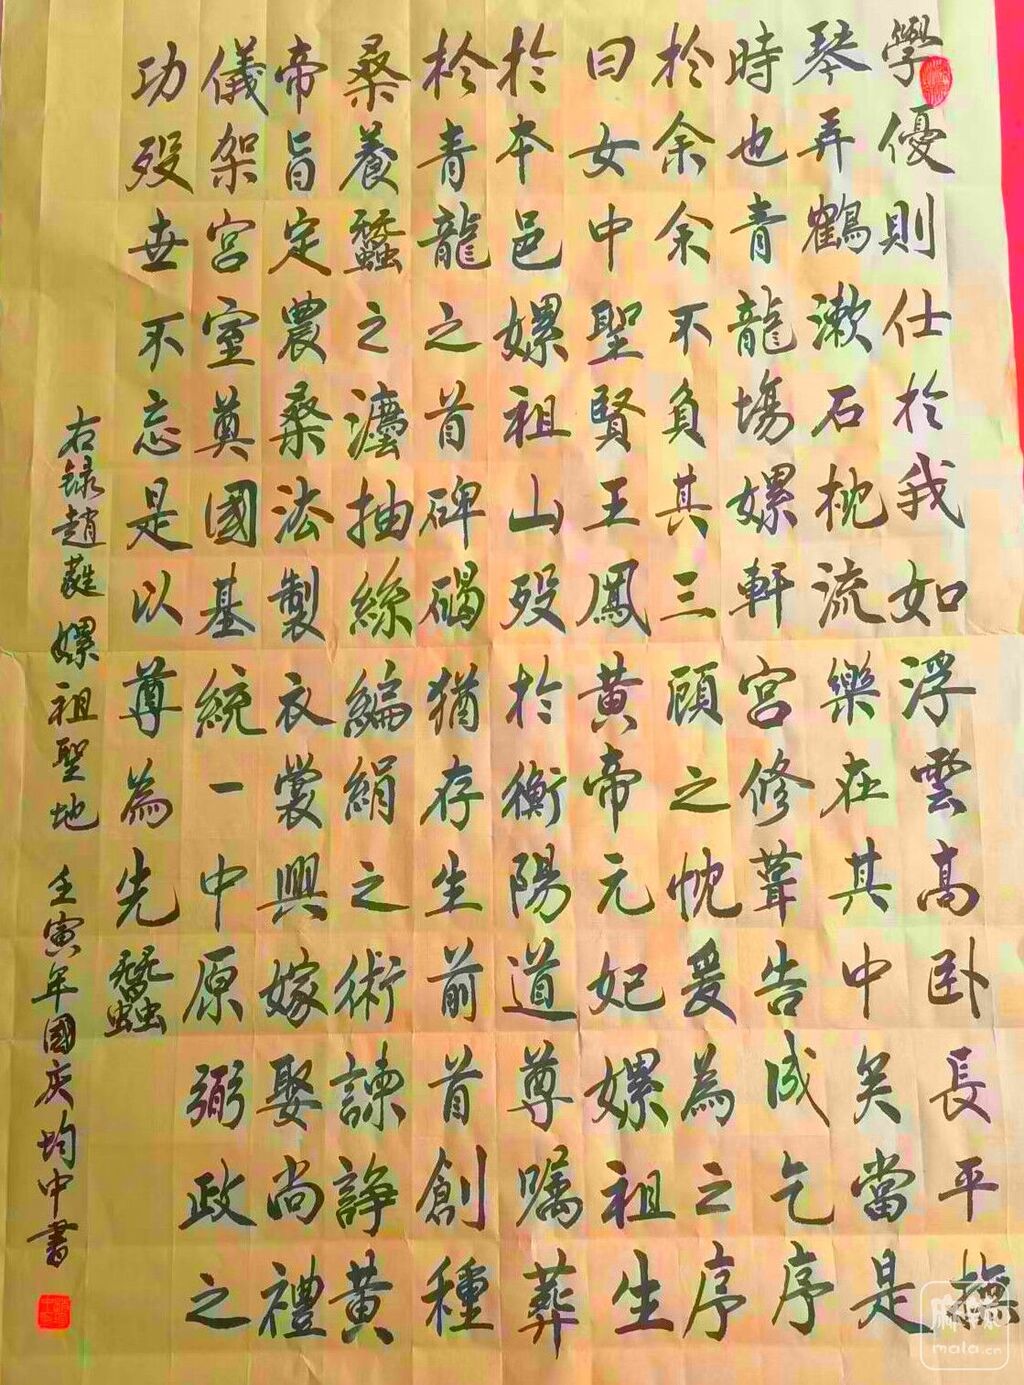 學優則仕於我如浮雲高卧長平撫
琴弄鶴漱石枕流樂在其中矣當是
時也青龍場嫘軒宮修葺告成乞序
於余余不負其三顧之忱爰為之序
曰女中聖賢王鳳黃帝元妃嫘祖生
於本邑嫘祖山歿於衡陽道尊囑葬
於青龍之首碑碣猶存生前首創種
桑養蠶之灋抽絲編絹之術諫諍黃
帝旨定農桑法製衣裳興嫁娶尚禮
儀架宮室奠國基統一中原弼政之
功歿世不忘是以尊為先蠶
右録趙蕤嫘祖聖地 壬寅年國庆均中書
麻辣
mala.cn